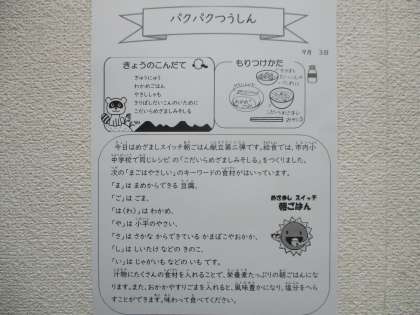 パクパクつうしん
9月 3日
きょうのこんだて
ぎゅうにゅう
わかめごはん
やさししゃも
きりぼしだいこんのいために
こだいらめざましみそしる
もりつけかた
今日はめざましスイッチ朝ごはん献立第二弾です。給食では、市内小
中学校で同じレシピの「こだいらめざましみそしる」をつくりました。
次の「まごはやさしい」のキーワードの食材がはいっています。
「ま」は まめからできる 豆腐、
「ご」は ごま、
「は(わ)」は わかめ、
「や」は 小平のやさい、
「さ」は さかな からできている かまぼこやおかか、
「し」は しいたけ などの きのこ、
「い」は じゃがいも などの いも です。
めざまし スイッチ
朝ごはん
汁物にたくさんの食材を入れることで、栄養素たっぷりの朝ごはんにな
ります。また、おかかやすりごまを入れると、風味豊かになり、塩分をへら
すことができます。味わって食べてください。